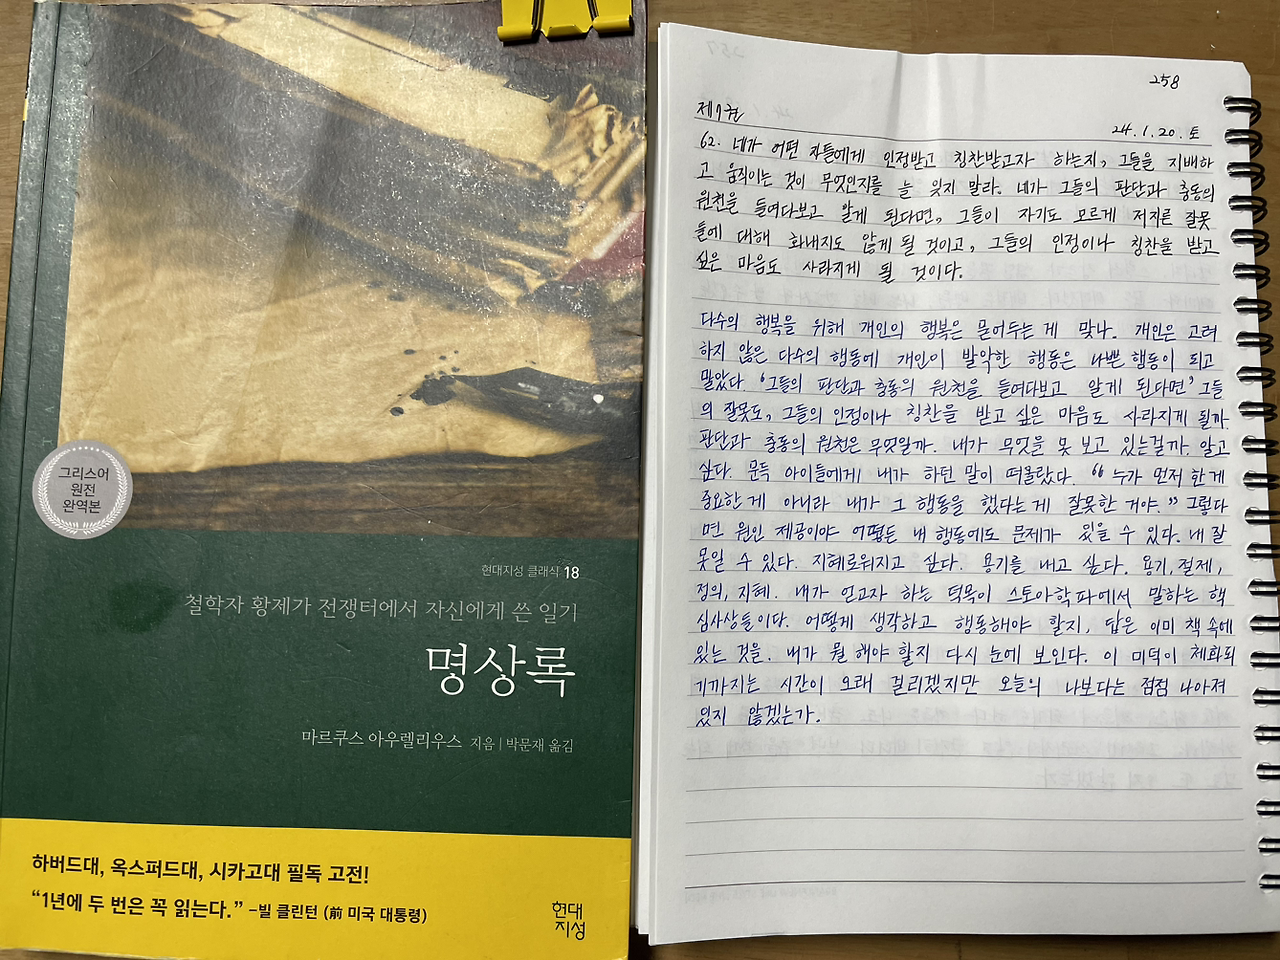 그리스어
원전
완역본
현대지성 클래식 18
철학자 황제가 전쟁터에서 자신에게 쓴 일기
명상록
마르쿠스 아우렐리우스 지음 | 박문재 옮김
하버드대, 옥스퍼드대, 시카고대 필독 고전!
“1년에 두 번은 꼭 읽는다.” –빌 클린턴 (前 미국 대통령)
현대
지성
258
제7권
24.1.20. 토
62. 네가 어떤 자들에게 인정받고 칭찬받고자 하는지, 그들을 지배하
고 움직이는 것이 무엇인지를 늘 잊지 말라. 네가 그들의 판단과 충동의
원천을 들여다보고 알게 된다면, 그들이 자기도 모르게 저지른 잘못
들에 대해 화내지도 않게 될 것이고, 그들의 인정이나 칭찬을 받고
싶은 마음도 사라지게 될 것이다.
다수의 행복을 위해 개인의 행복은 묻어두는 게 맞나. 개인은 고려
하지 않은 다수의 행동에 개인이 발악한 행동은 나쁜 행동이 되고
말았다. ‘그들의 판단과 충동의 원천을 들여다보고 알게 된다면’ 그들
의 잘못도, 그들의 인정이나 칭찬을 받고 싶은 마음도 사라지게 될까.
판단과 충동의 원천은 무엇일까. 내가 무엇을 못 보고 있는걸까. 알고
싶다. 문득 아이들에게 내가 하던 말이 떠올랐다. “누가 먼저 한 게
중요한 게 아니라 내가 그 행동을 했다는 게 잘못한 거야.” 그렇다
면 원인 제공이야 어떻든 내 행동에도 문제가 있을 수 있다. 내 잘
못일 수 있다. 지혜로워지고 싶다. 용기를 내고 싶다. 용기, 절제,
정의, 지혜. 내가 얻고자 하는 덕목이 스토아학파에서 말하는 핵
심사상들이다. 어떻게 생각하고 행동해야 할지, 답은 이미 책 속에
있는 것을. 내가 뭘 해야 할지 다시 눈에 보인다. 이 미덕이 체화되
기까지는 시간이 오래 걸리겠지만 오늘의 나보다는 점점 나아져
있지 않겠는가.